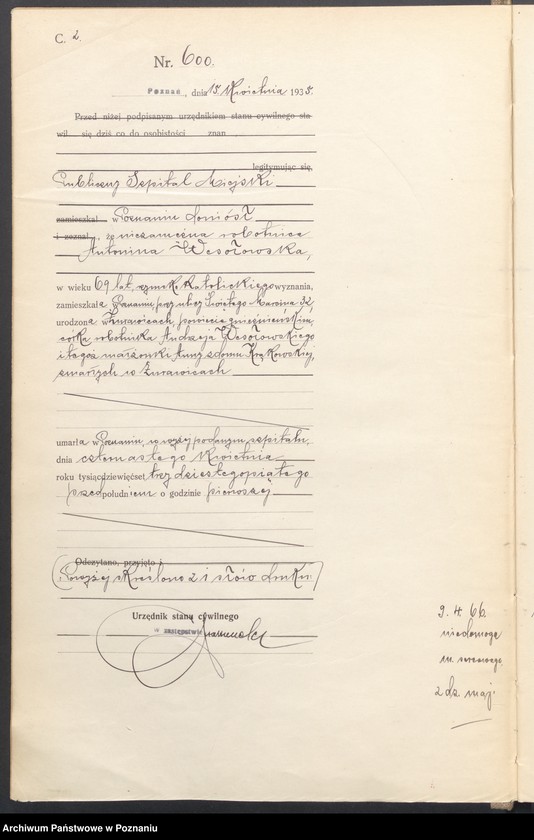 C. 2.
Nr. 600.
Poznań, dnia 15. Kwietnia 1935.
Przed niżej podpisanym urzędnikiem stanu cywilnego sta-
wił się dziś co do osobistości znan
legitymując się
Publiczny Szpital Miejski
zamieszkał w Poznaniu doniósł
i zeznał, że niezamężna robotnica
Antonina Wesołowska,
w wieku 69 lat, rzymsko katolickiego wyznania,
zamieszkała w Poznaniu, przy ulicy Świętego Marcina 32,
urodzona w Żurawicach, powiecie gnieźnieńskim,
córka robotnika Andrzeja Wesołowskiego
i tegoż małżonki Anny z domu
zmarłych w Żurawicach
umarła w Poznaniu, w wyżej podanym szpitalu,
dnia czternastego Kwietnia
roku tysiącdziewięćset trzydziestegopiątego
przedpołudniem o godzinie pierwszej
Odczytano, przyjęto i
(Powyżej skreślono 21 słów druku)
Urzędnik stanu cywilnego
w zastępstwie
9. 4. 66.
niedomoga
m. sercowego
2 dz. maj.
Archiwum Państwowe w Poznaniu